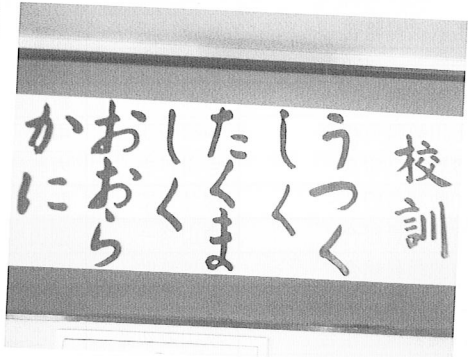 校訓
うつく
しく
たくま
しく
おおら
かに